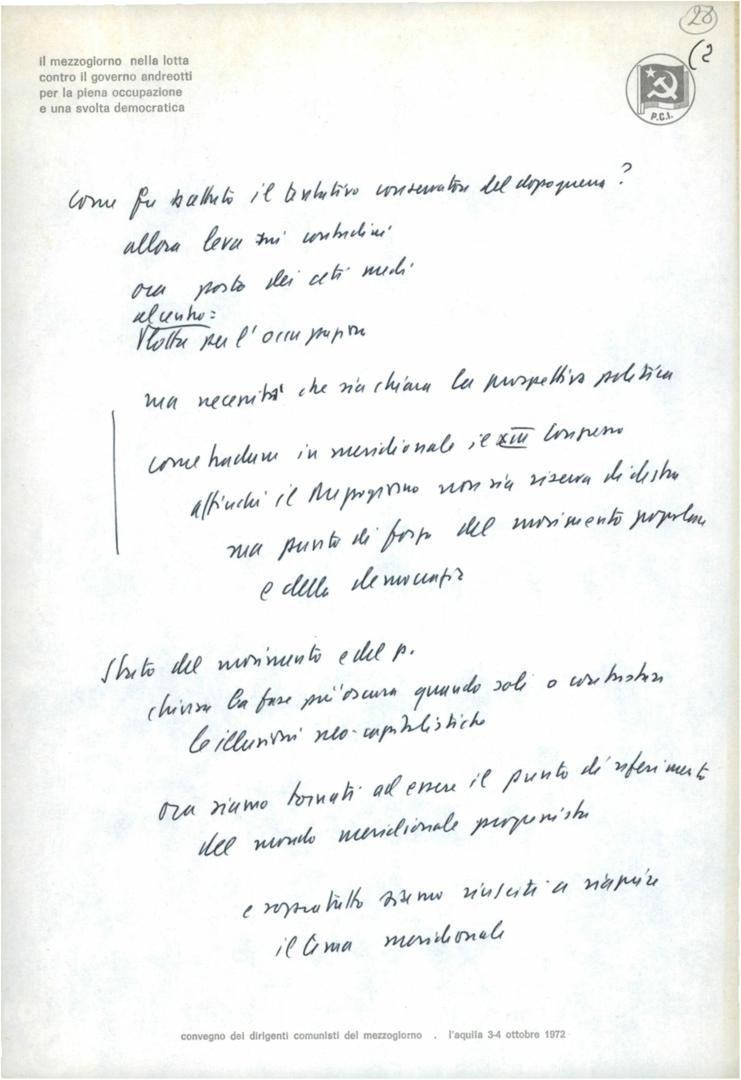 28
(2
il mezzogiorno nella lotta
contro il governo andreotti
per la piena occupazione
e una svolta democratica
P.C.I.
come fu battuto il tentativo conservatore del dopoguerra?
allora leva sui contadini
ora posto dei ceti medi
al centro:
lotta per l'occupazione
ma necessità che sia chiara la prospettiva politica
come tradurre in meridionale il XIII Congresso
affinché il Mezzogiorno non sia riserva di destra
ma punto di forza del movimento popolare
e della democrazia
Stato del movimento e del p.
chiusa la fase più oscura quando soli a contrastare
le illusioni neo-capitalistiche
ora siamo tornati ad essere il punto di riferimento
del mondo meridionale progressista
e soprattutto siamo riusciti a riaprire
il tema meridionale
convegno dei dirigenti comunisti del mezzogiorno . l'aquila 3-4 ottobre 1972